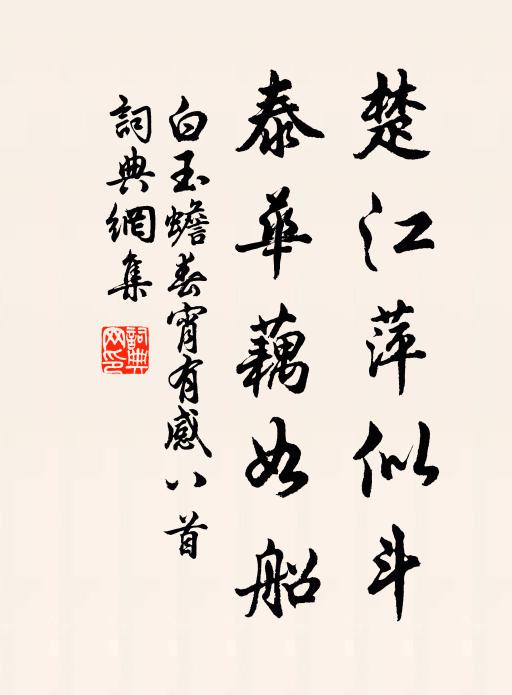 楚江萍似斗
泰華藕如船
白玉蟾春宵有感八首
詞典網集
詞典網印